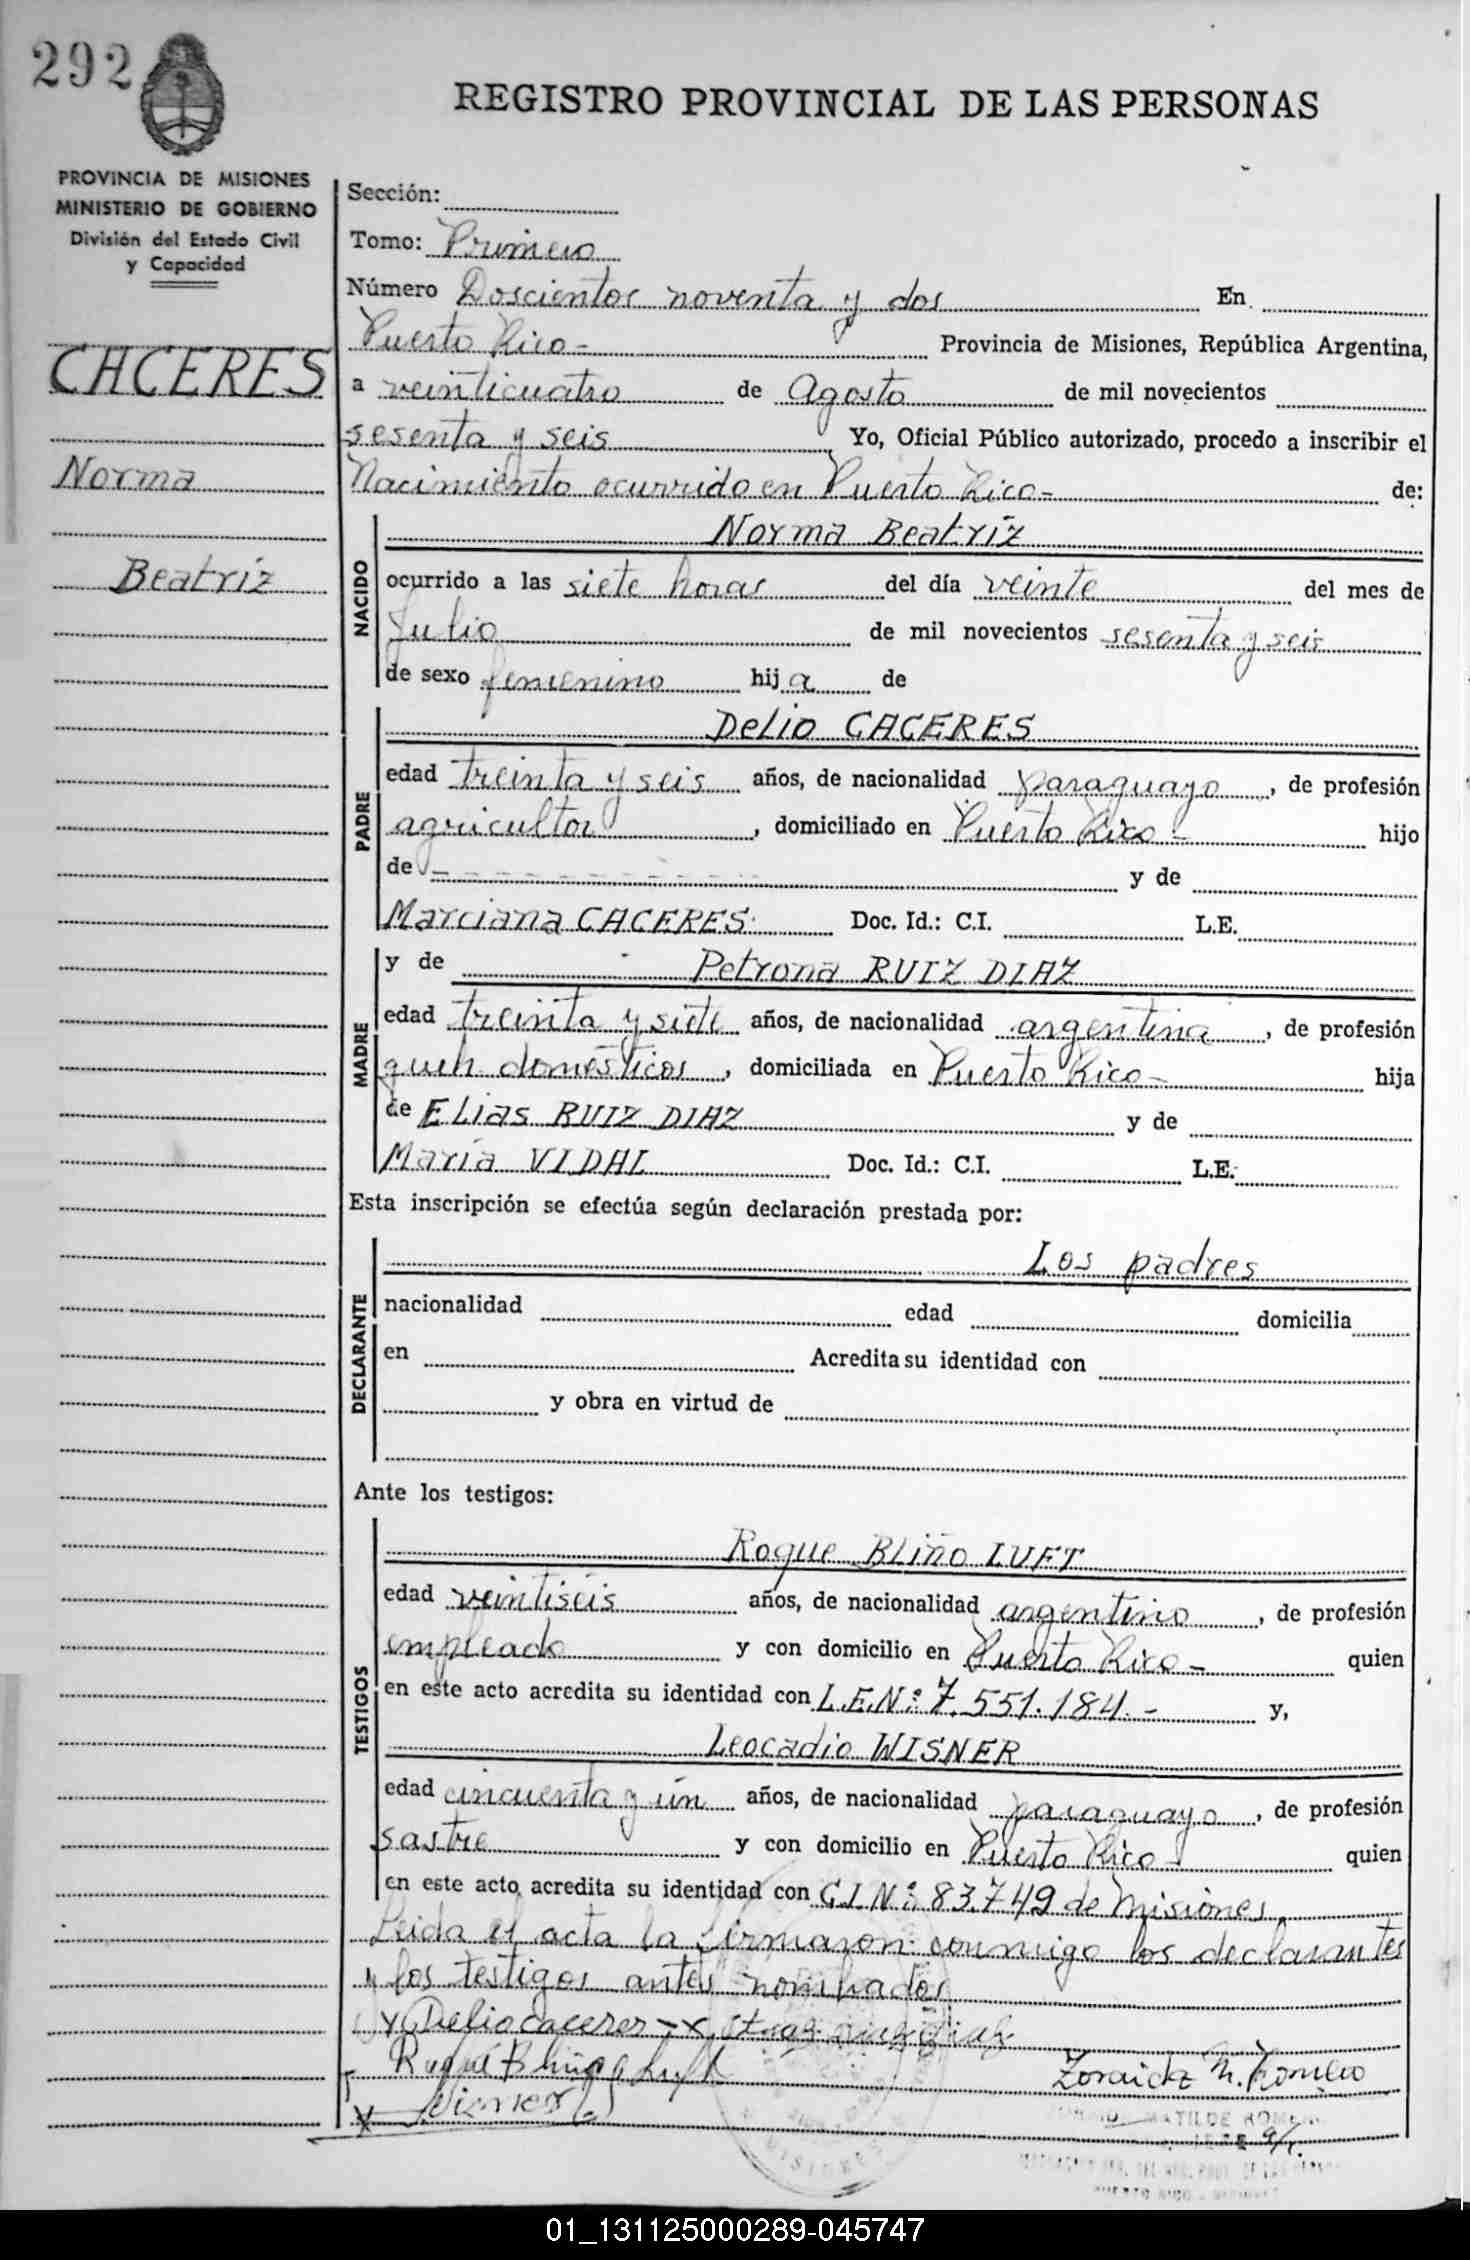 292
REGISTRO PROVINCIAL DE LAS PERSONAS
PROVINCIA DE MISIONES
MINISTERIO DE GOBIERNO
División del Estado Civil
y Capacidad
CACERES
Norma
Beatríz
Sección:
Tomo: Primero
Número Doscientos noventa y dos En
Puerto Rico- Provincia de Misiones, República Argentina,
a veinticuatro de Agosto de mil novecientos
sesenta y seis Yo, Oficial Público autorizado, procedo a inscribir el
Nacimiento ocurrido en Puerto Rico- de:
NACIDO
Norma Beatríz
ocurrido a las siete horas del día veinte del mes de
Julio de mil novecientos sesenta y seis
de sexo femenino hija de
PADRE
Delio CACERES
edad treinta y seis años, de nacionalidad paraguayo, de profesión
agricultor, domiciliado en Puerto Rico- hijo
de - - - - - - - - y de
Marciana CACERES Doc. Id.: C.I. L.E.
MADRE
y de Petrona RUIZ DIAZ
edad treinta y siete años, de nacionalidad argentina, de profesión
queh. domésticos, domiciliada en Puerto Rico- hija
de Elias RUIZ DIAZ y de
María VIDAL Doc. Id.: C.I. L.E.
Esta inscripción se efectúa según declaración prestada por:
DECLARANTE
Los padres
nacionalidad edad domicilia
en Acredita su identidad con
y obra en virtud de
Ante los testigos:
TESTIGOS
Roque Bliño LUFT
edad veintiseis años, de nacionalidad argentino, de profesión
empleado y con domicilio en Puerto Rico- quien
en este acto acredita su identidad con L.E.Nº: 7.551.184.- y,
Leocadio WISNER
edad cincuenta y un años, de nacionalidad paraguayo, de profesión
sastre y con domicilio en Puerto Rico- quien
en este acto acredita su identidad con C.I.Nº: 83.749 de Misiones
Leida el acta la firmaron conmigo los declarantes
y los testigos antes nombrados
x Delio caceres - x
Zoraida M. Romero
MATILDE
MISIONES
01_131125000289-045747